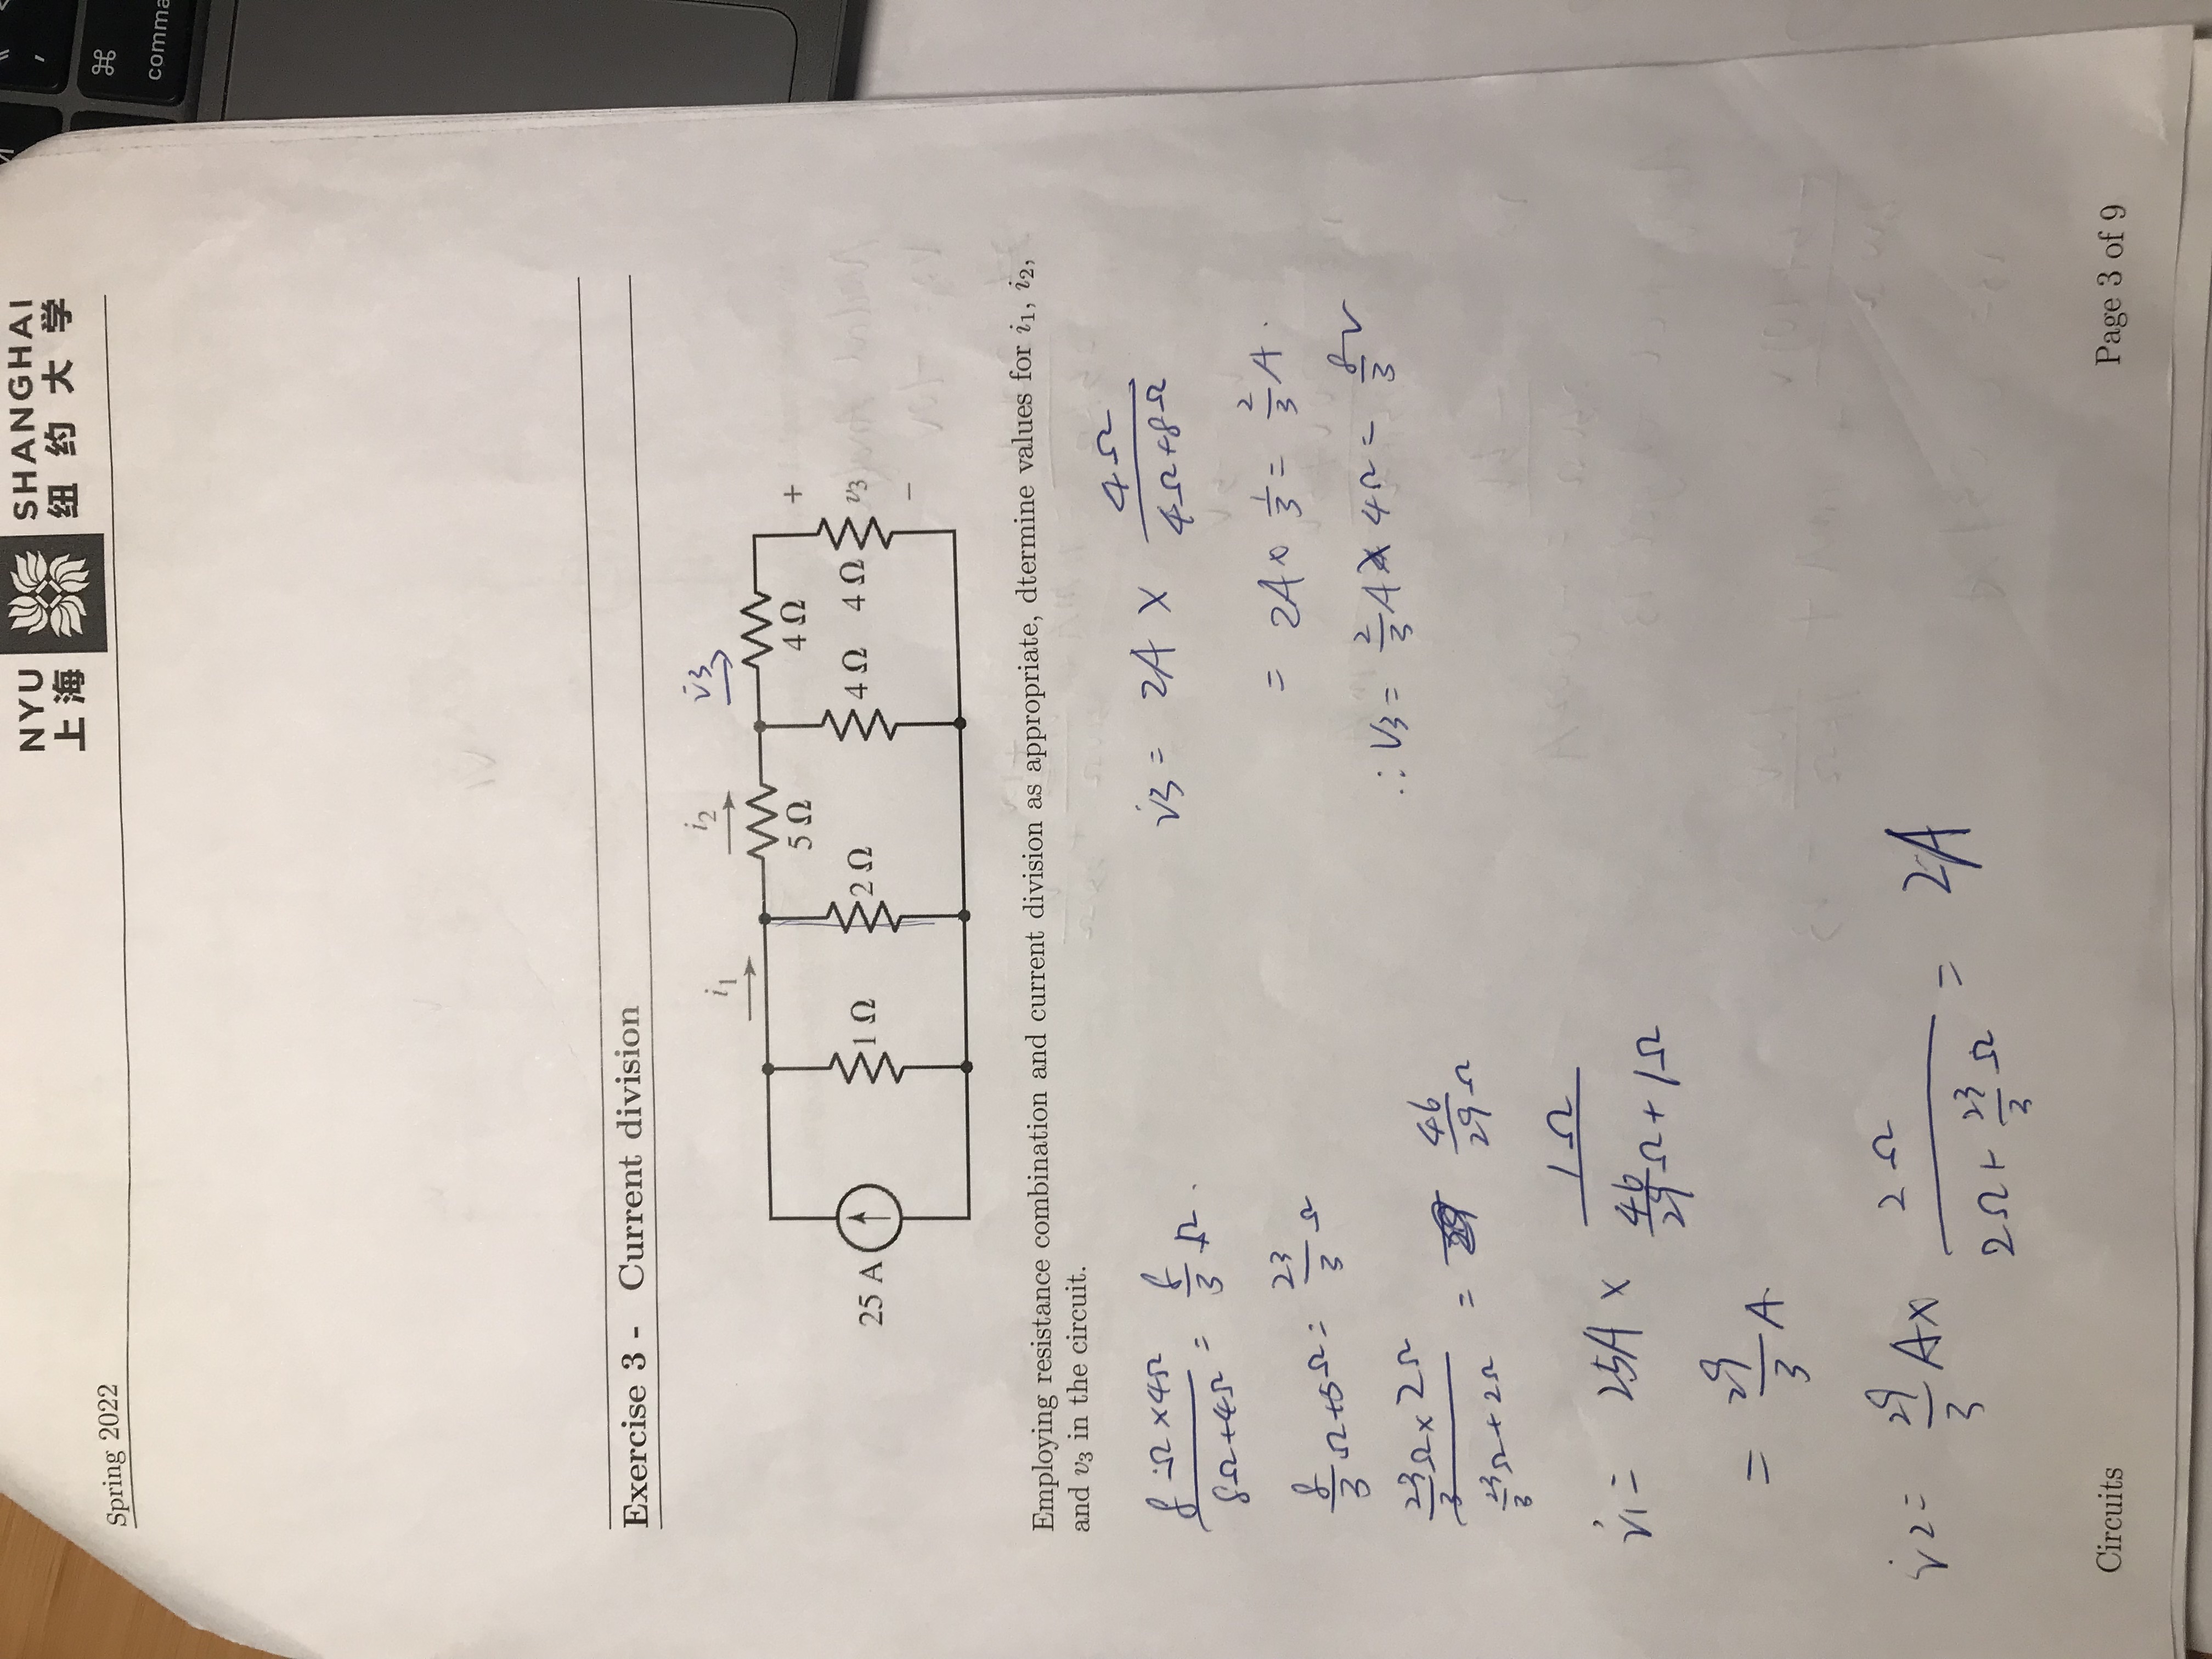 NYU SHANGHAI
上海 纽约大学
Spring 2022
⌘
comma
Exercise 3 - Current division
i1
i2
i3
5 Ω
4 Ω
+
25 A
1 Ω
2 Ω
4 Ω
4 Ω
v3
−
Employing resistance combination and current division as appropriate, dtermine values for i1, i2,
and v3 in the circuit.
(8Ω×4Ω)/(8Ω+4Ω) = 8/3 Ω.
8/3 Ω+5Ω = 23/3 Ω
(23/3 Ω × 2Ω)/(23/3 Ω + 2Ω) = 46/29 Ω
i1 = 25A × 1Ω/(46/29 Ω + 1Ω)
= 29/3 A
i2 = 29/3 A× 2Ω/(2Ω+ 23/3 Ω) = 2A
i3 = 2A × 4Ω/(4Ω+8Ω)
= 2A× 1/3 = 2/3 A.
∴ V3 = 2/3 A × 4Ω = 8/3 V
Circuits
Page 3 of 9